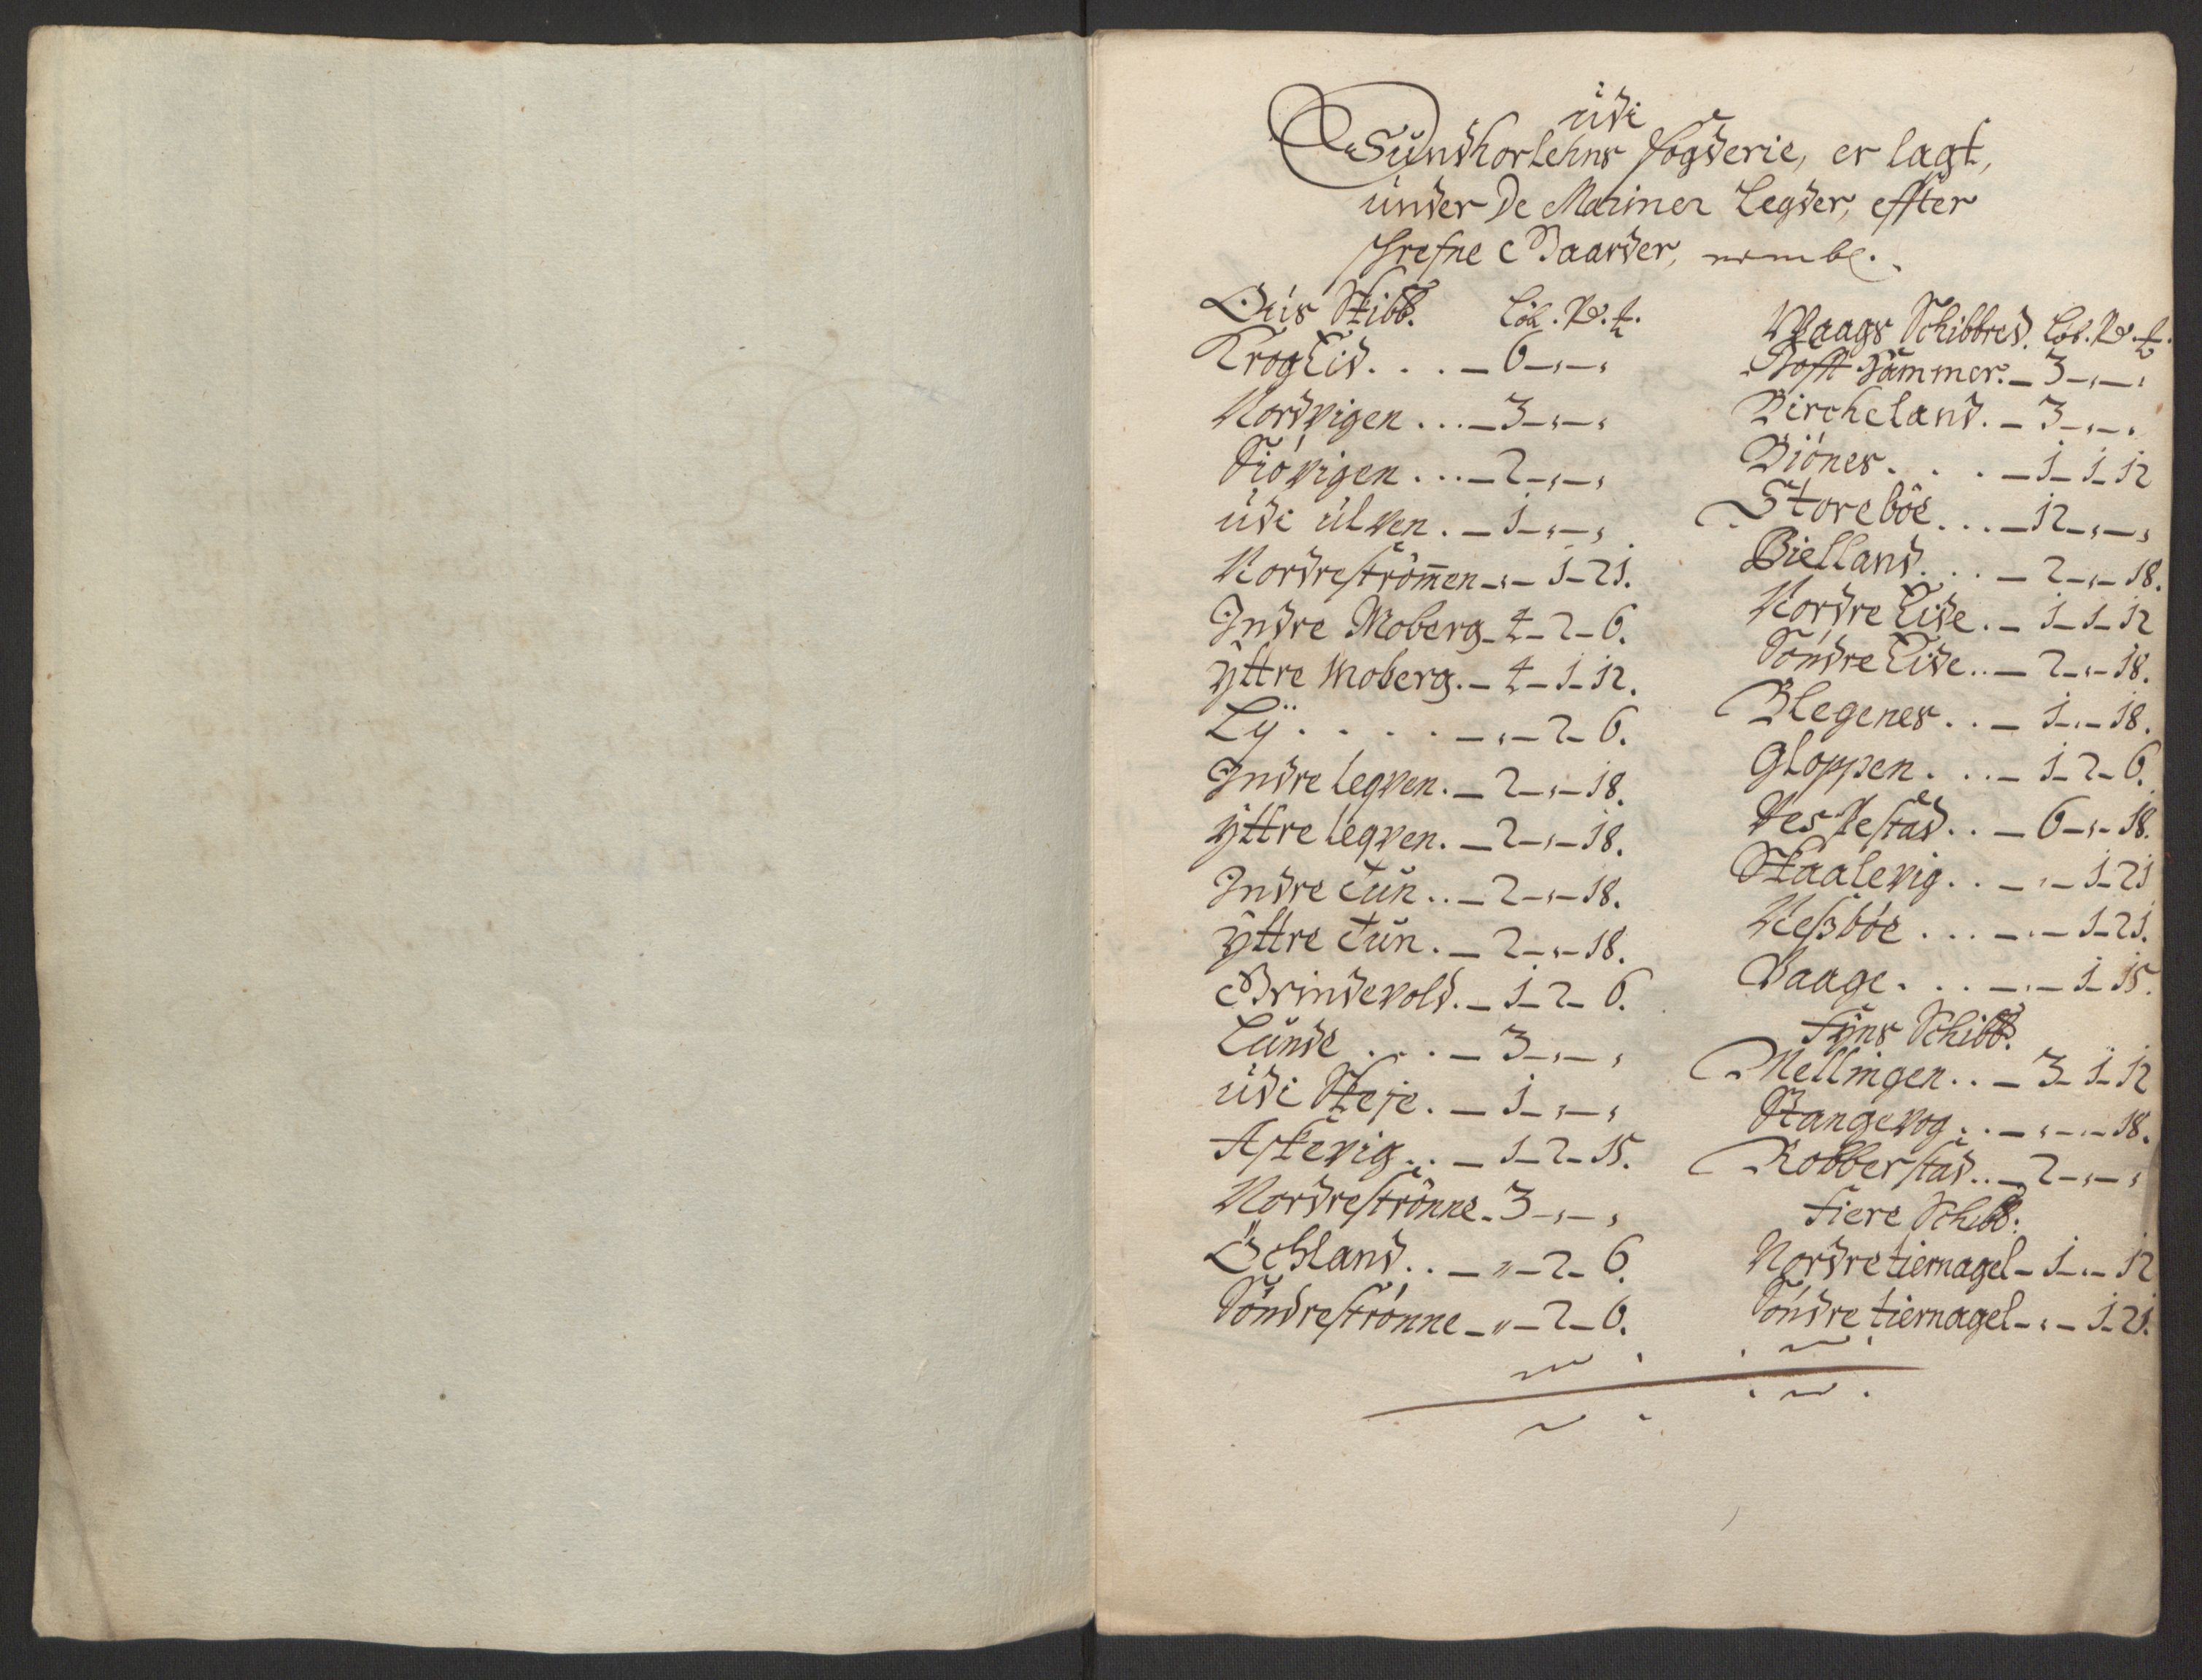 udi
Sundhorlehns fogderie, er lagt,
under De Mariner Legder, effter
schrefne Gaarder, nembl.
Ous Skibb. Löb. Pd. ℔.
Krog Eid. . . . — 6 — „ — „
Nordvigen . . . — 3 — „ — „
Siövigen . . . — 2 — „ — „
udi ulven . — 1 — „ — „
Nordre strömen — „ — 1 — 21.
Indre Moberg — 4 — 2 — 6.
yttre Moberg . — 4 — 1 — 12.
Lÿ . . . . — „ — 2 — 6.
Indre legven . — 2 — „ — 18.
yttre legven . — 2 — „ — 18.
Indre Tun . . — 2 — „ — 18.
yttre Tun . — 2 — „ — 18.
Grindevold . — 1 — 2 — 6.
Lunde . . . — 3 — „ — „
udi Skeje . — 1 — „ — „
Askevig . . — 1 — 2 — 15.
Nordre strönne — 3 — „ — „
Öchland . . — „ — 2 — 6.
Söndre strönne — „ — 2 — 6.
Waags Schibbred. Löb. Pd. ℔.
Tofft Hammer. — 3 — „ — „
Bircheland. — 3 — „ — „
Biönes . . . — 1 — 1 — 12
Storeböe . . . — 12 — „ — „
Bielland . . . — 2 — „ — 18.
Nordre Eide . — 1 — 1 — 12
Söndre Eide . . — 2 — „ — 18.
Blegenes . . — 1 — „ — 18.
Gloppen . . . — 1 — 2 — 6.
Vespestad . . — 6 — „ — 18.
Skaalevig . . — „ — 1 — 21
Neßböe . . . — „ — 1 — 21.
Vaage . . . — „ — 1 — 15.
Fÿns Schibb.
Mellingen . . — 3 — 1 — 12
Stangevog . . — „ — „ — 18.
Robberstad . . — 2 — „ — „
Fiere Schibb.
Nordre tiernagel — 1 — „ — 12
Söndre tiernagel — „ — 1 — 21.